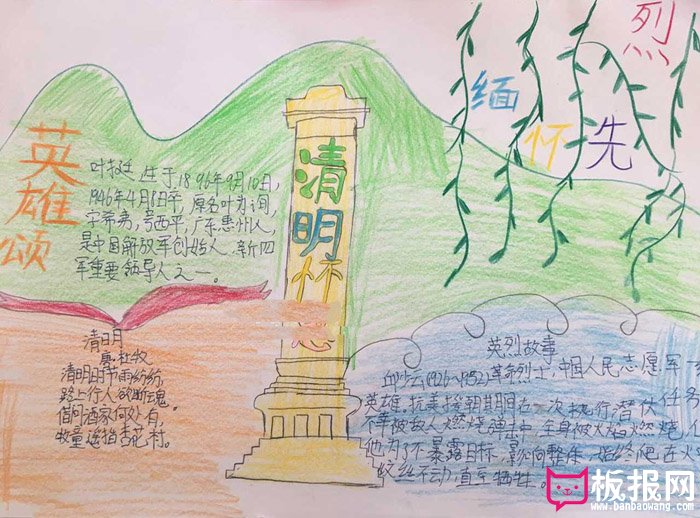 英雄颂
叶挺,生于1896年9月10日,
1946年4月8日卒,原名叶为询,
字希夷,号西平,广东惠州人,
是中国解放军创始人,新四
军重要领导人之一。
清明
唐 杜牧
清明时节雨纷纷,
路上行人欲断魂。
借问酒家何处有,
牧童遥指杏花村。
清明怀
缅怀先烈
英烈故事
邱少云(1926~1952)革命烈士,中国人民志愿军
英雄。抗美援朝期间在一次执行潜伏任务
不幸被敌人燃烧弹击中,全身被火焰燃烧,
他为了不暴露目标,影响整体,始终爬在火
纹丝不动,直至牺牲。
板报网
www.banbaowang.com